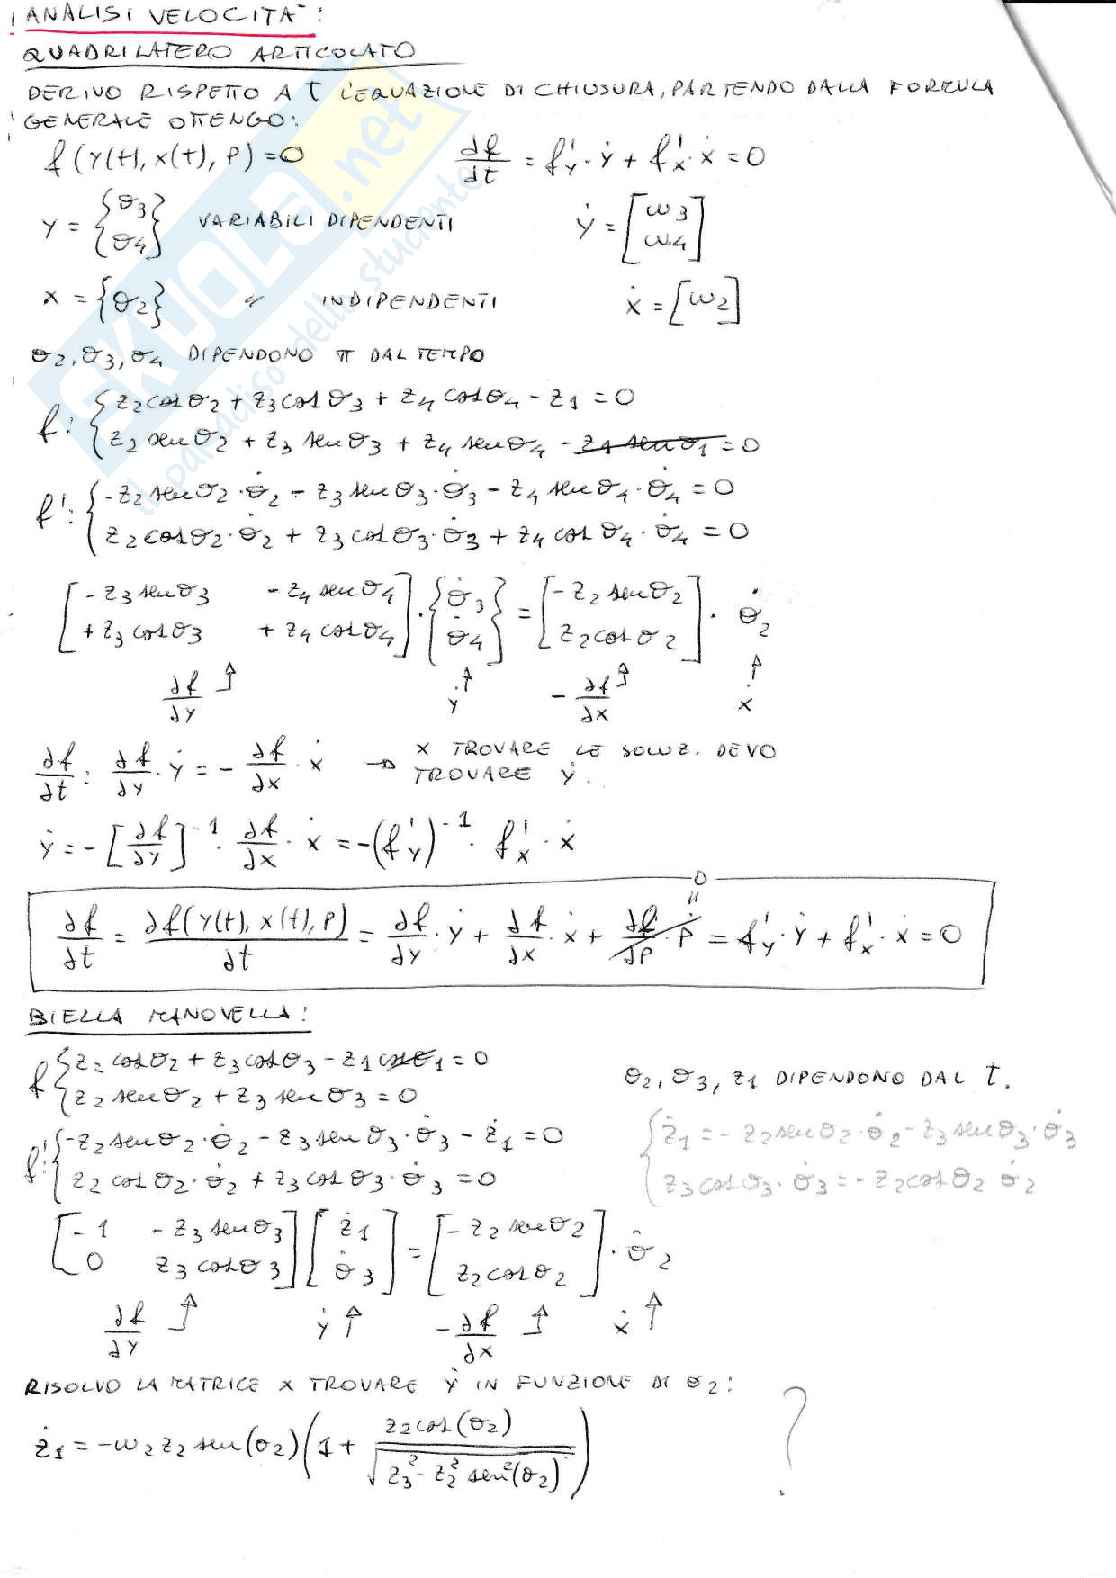 ANALISI VELOCITA':
QUADRILATERO ARTICOLATO
DERIVO RISPETTO A t L'EQUAZIONE DI CHIUSURA, PARTENDO DALLA FORMULA
GENERALE OTTENGO:
f(y(t), x(t), p) = 0    ∂f/∂t = f'y · ẏ + f'x · ẋ = 0
y = {θ3 θ4} VARIABILI DIPENDENTI    ẏ = [ω3 ω4]
x = {θ2} " INDIPENDENTI    ẋ = [ω2]
θ2, θ3, θ4 DIPENDONO DAL TEMPO
f: { z2 cosθ2 + z3 cosθ3 + z4 cosθ4 - z1 = 0
z2 senθ2 + z3 senθ3 + z4 senθ4 - z1 senθ1 = 0
f': { -z2 senθ2 · θ̇2 - z3 senθ3 · θ̇3 - z4 senθ4 · θ̇4 = 0
z2 cosθ2 · θ̇2 + z3 cosθ3 · θ̇3 + z4 cosθ4 · θ̇4 = 0
[ -z3 senθ3   -z4 senθ4 ] · { θ̇3 } = [ -z2 senθ2 ] · θ̇2
[ +z3 cosθ3   +z4 cosθ4 ]   { θ̇4 }   [ z2 cosθ2 ]
∂f/∂y    ẏ    -∂f/∂x    ẋ
∂f/∂t : ∂f/∂y · ẏ = - ∂f/∂x · ẋ → X TROVARE LE SOLUZ. DEVO
TROVARE ẏ.
ẏ = -[∂f/∂y]^-1 · ∂f/∂x · ẋ = -(f'y)^-1 · f'x · ẋ
0
"
∂f/∂t = ∂f(y(t), x(t), p)/∂t = ∂f/∂y · ẏ + ∂f/∂x · ẋ + ∂f/∂p · ṗ = f'y · ẏ + f'x · ẋ = 0
BIELLA MANOVELLA:
f { z2 cosθ2 + z3 cosθ3 - z1 cosθ1 = 0
z2 senθ2 + z3 senθ3 = 0    θ2, θ3, z1 DIPENDONO DAL t.
f': { -z2 senθ2 · θ̇2 - z3 senθ3 · θ̇3 - ż1 = 0    { ż1 = -z2 senθ2 · θ̇2 - z3 senθ3 · θ̇3
z2 cosθ2 · θ̇2 + z3 cosθ3 · θ̇3 = 0    z3 cosθ3 · θ̇3 = -z2 cosθ2 θ̇2
[ -1   -z3 senθ3 ] [ ż1 ] = [ -z2 senθ2 ] · θ̇2
[ 0   z3 cosθ3 ] [ θ̇3 ]   [ z2 cosθ2 ]
∂f/∂y    ẏ    -∂f/∂x    ẋ
RISOLVO LA MATRICE X TROVARE ẏ IN FUNZIONE DI θ2:
ż1 = -ω2 z2 sen(θ2) (1 + z2 cos(θ2) / √(z3² - z2² sen²(θ2)))    ?
SKUOLA.net
il paradiso dello studente